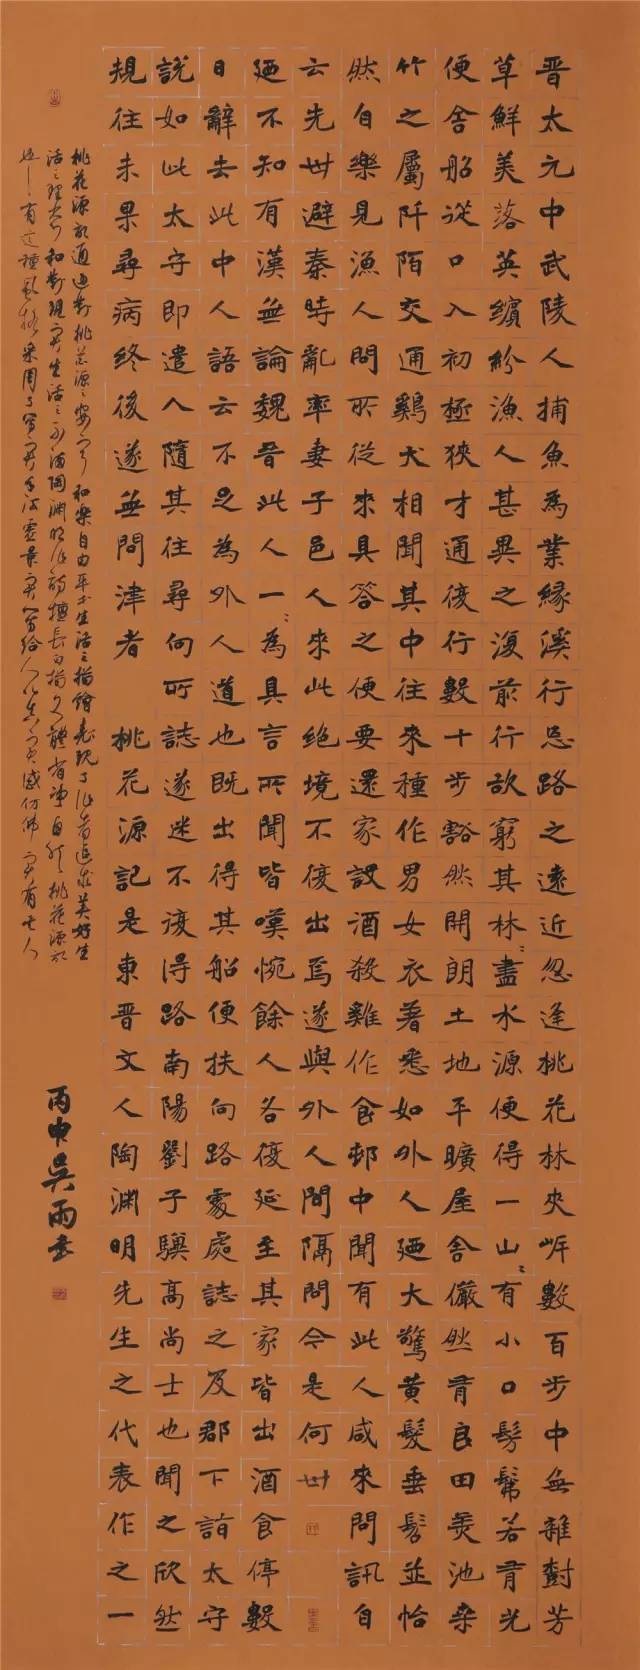 晋太元中武陵人捕魚為業緣溪行忘路之遠近忽逢桃花林夾岸數百步中無雜對芳
草鮮美落英繽紛漁人甚異之復前行欲窮其林〻盡水源便得一山〻有小口髣髴若有光
便舍船從口入初極狹才通復行數十步豁然開朗土地平曠屋舍儼然有良田美池桑
竹之屬阡陌交通鷄犬相聞其中往來種作男女衣著悉如外人廼大驚黃髮垂髫並怡
然自樂見漁人問所從來具答之便要還家設酒殺雞作食邨中聞有此人咸來問訊自
云先世避秦時亂率妻子邑人來此絕境不復出焉遂與外人間隔問今是何世
廼不知有漢無論魏晉此人一〻為具言所聞皆嘆惋餘人各復延至其家皆出酒食停數
日辭去此中人語云不足為外人道也既出得其船便扶向路處處誌之及郡下詣太守
說如此太守即遣人隨其往尋向所誌遂迷不復得路南陽劉子驥高尚士也聞之欣然
規往未果尋病終後遂無問津者 桃花源記是東晉文人陶淵明先生之代表作之一
桃花源記通過對桃花源之安寧和樂自由平等生活之描繪表現了作者追求美好生
活之理想和對現實生活之不滿陶淵明作詩擅長白描文體省淨自然桃花源記
也一有這種風格采用了寫實手法虛景實寫給人以真實感仿佛實有其人
丙申吳雨書